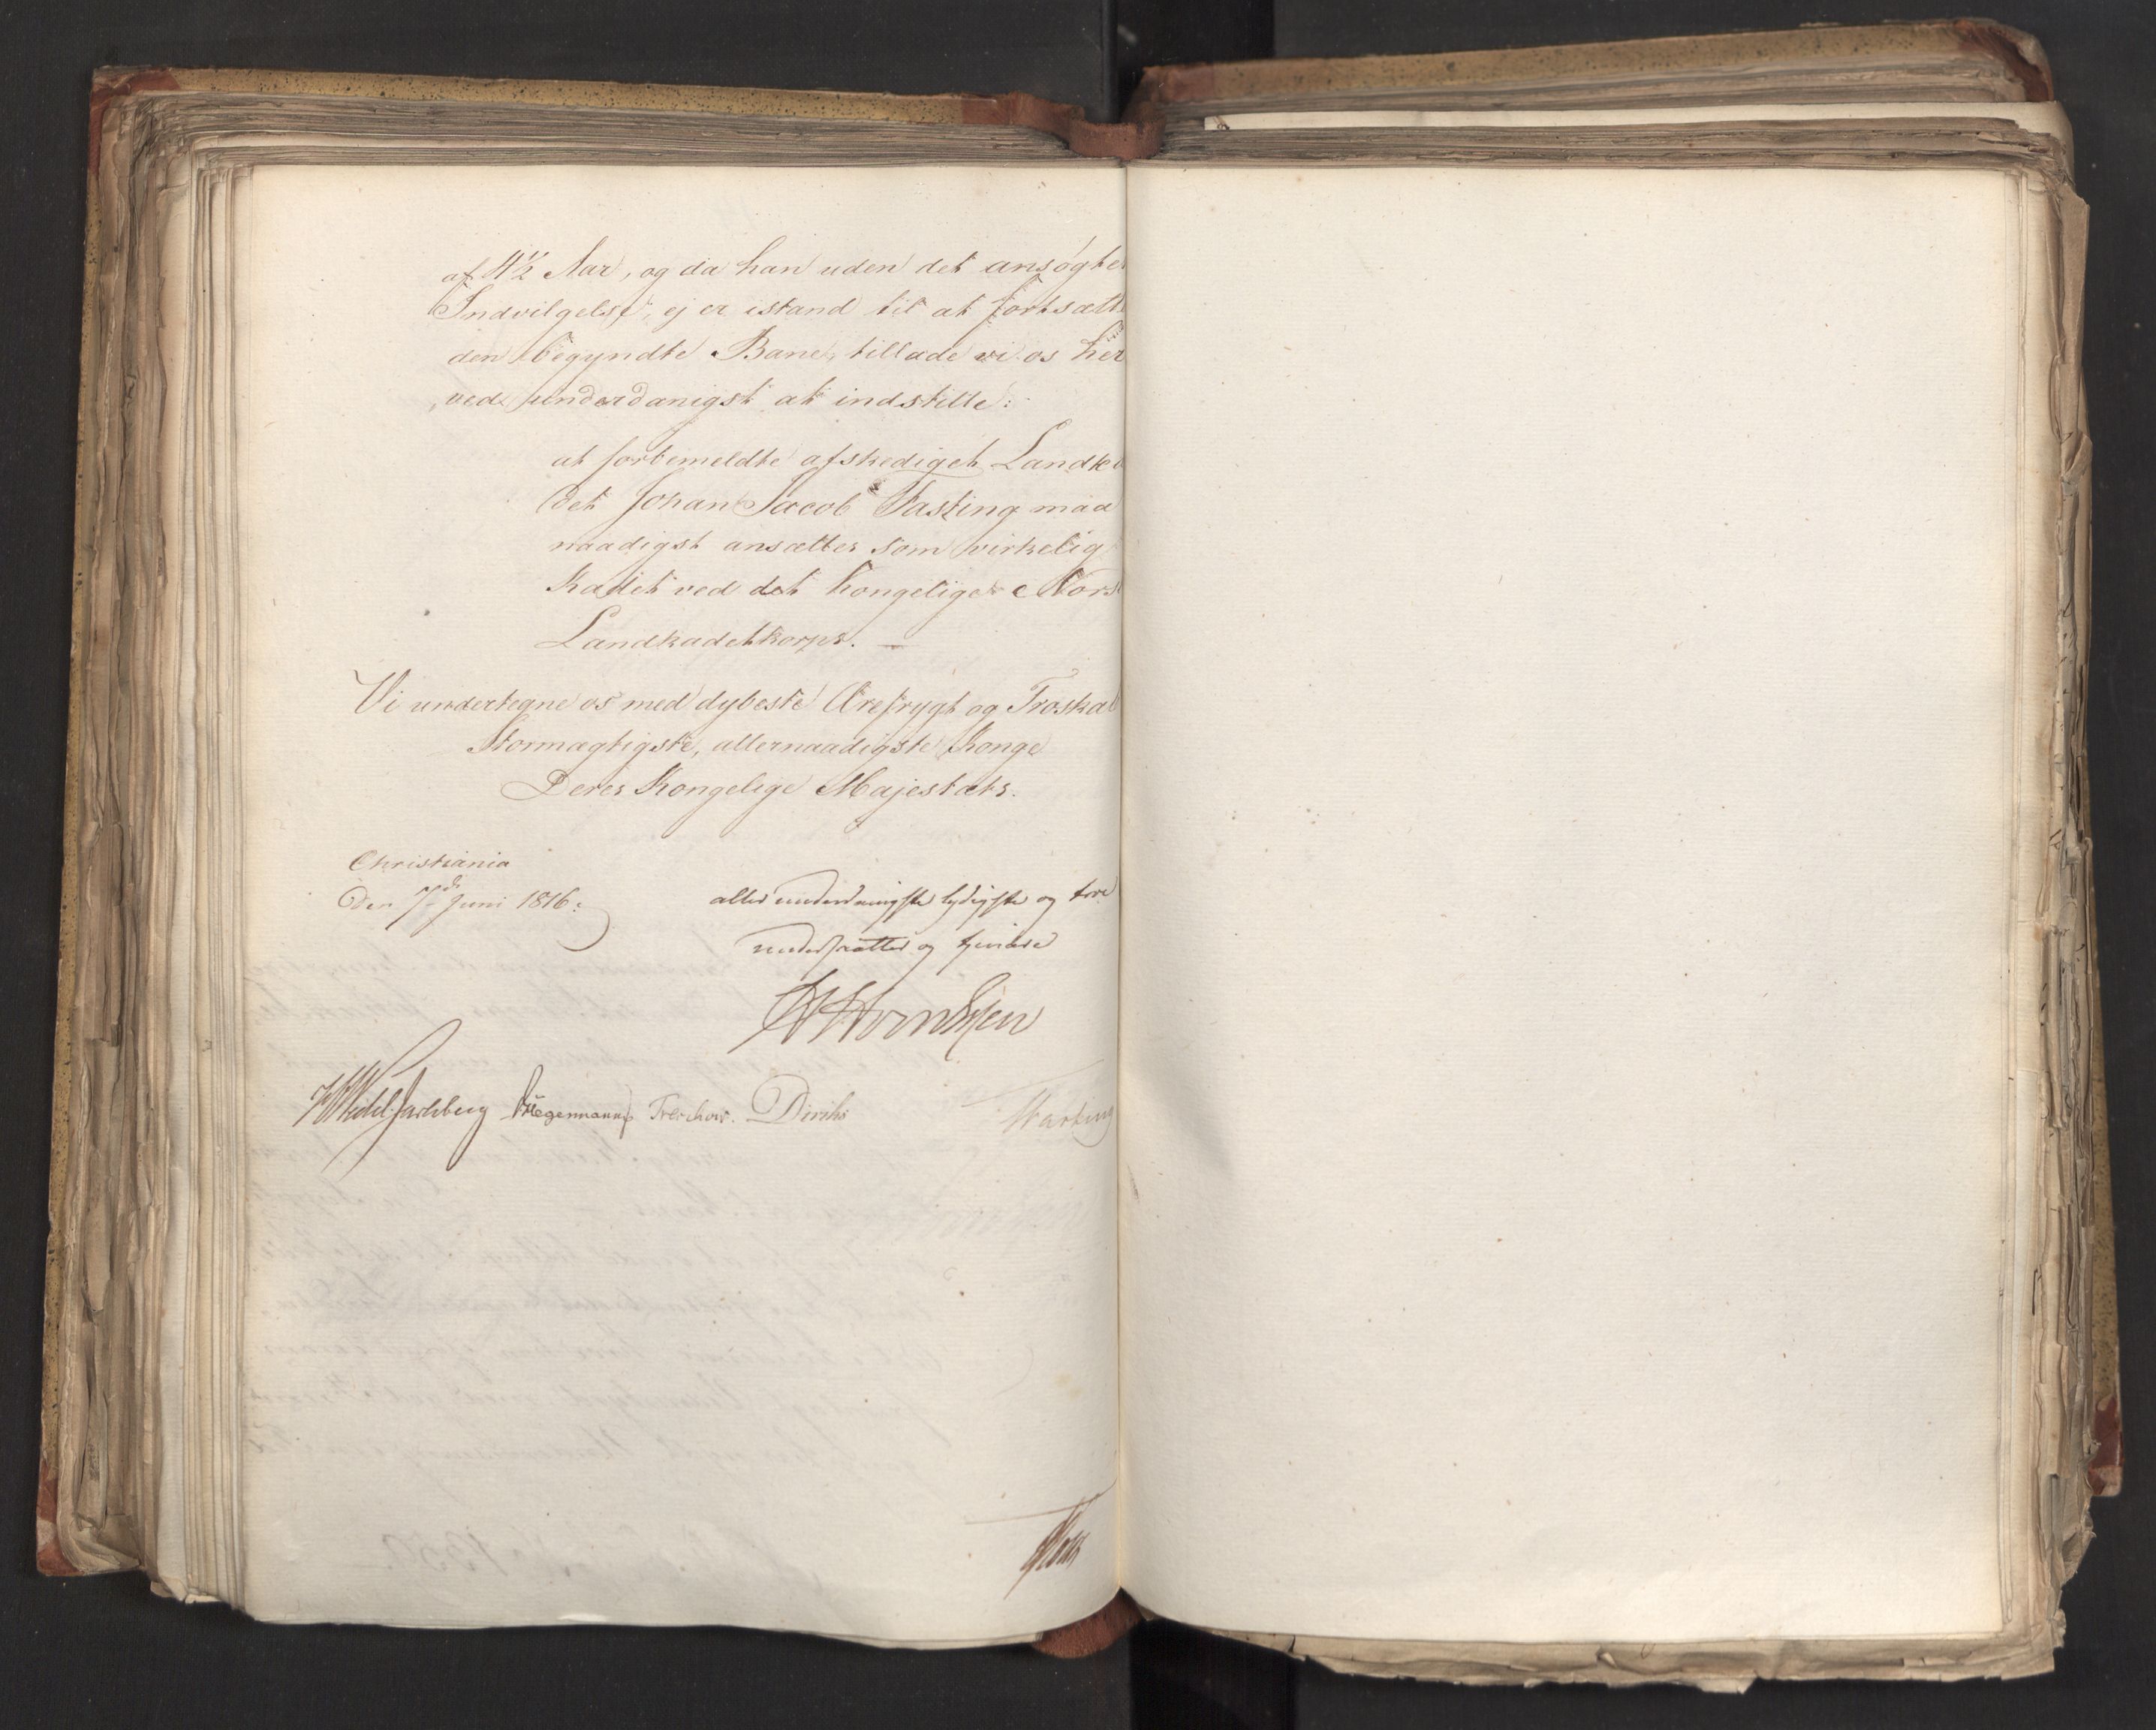 af 4½ Aar, og da han uden det ansøgte
Indvilgelse, ej er istand til at fortsætt
den begyndte Bane, tillade vi os her
ved underdanigst at indstille:
at forbemeldte afskediget Landka
det Johan Jacob Fasting maa
naadigst ansættes som virkelig
Kadet ved det kongelige Norsk
Landkadetkorps. —
Vi undertegne os med dybeste Ærefrygt og Troskab
Stormægtigste, allernaadigste Konge
Deres Kongelige Majestæts.
Christiania
den 7de Juni 1816.
aller underdanigste lydigste og troe
undersaatter og tjenere
Wedel Jarlsberg Krieger Treschow. Diriks